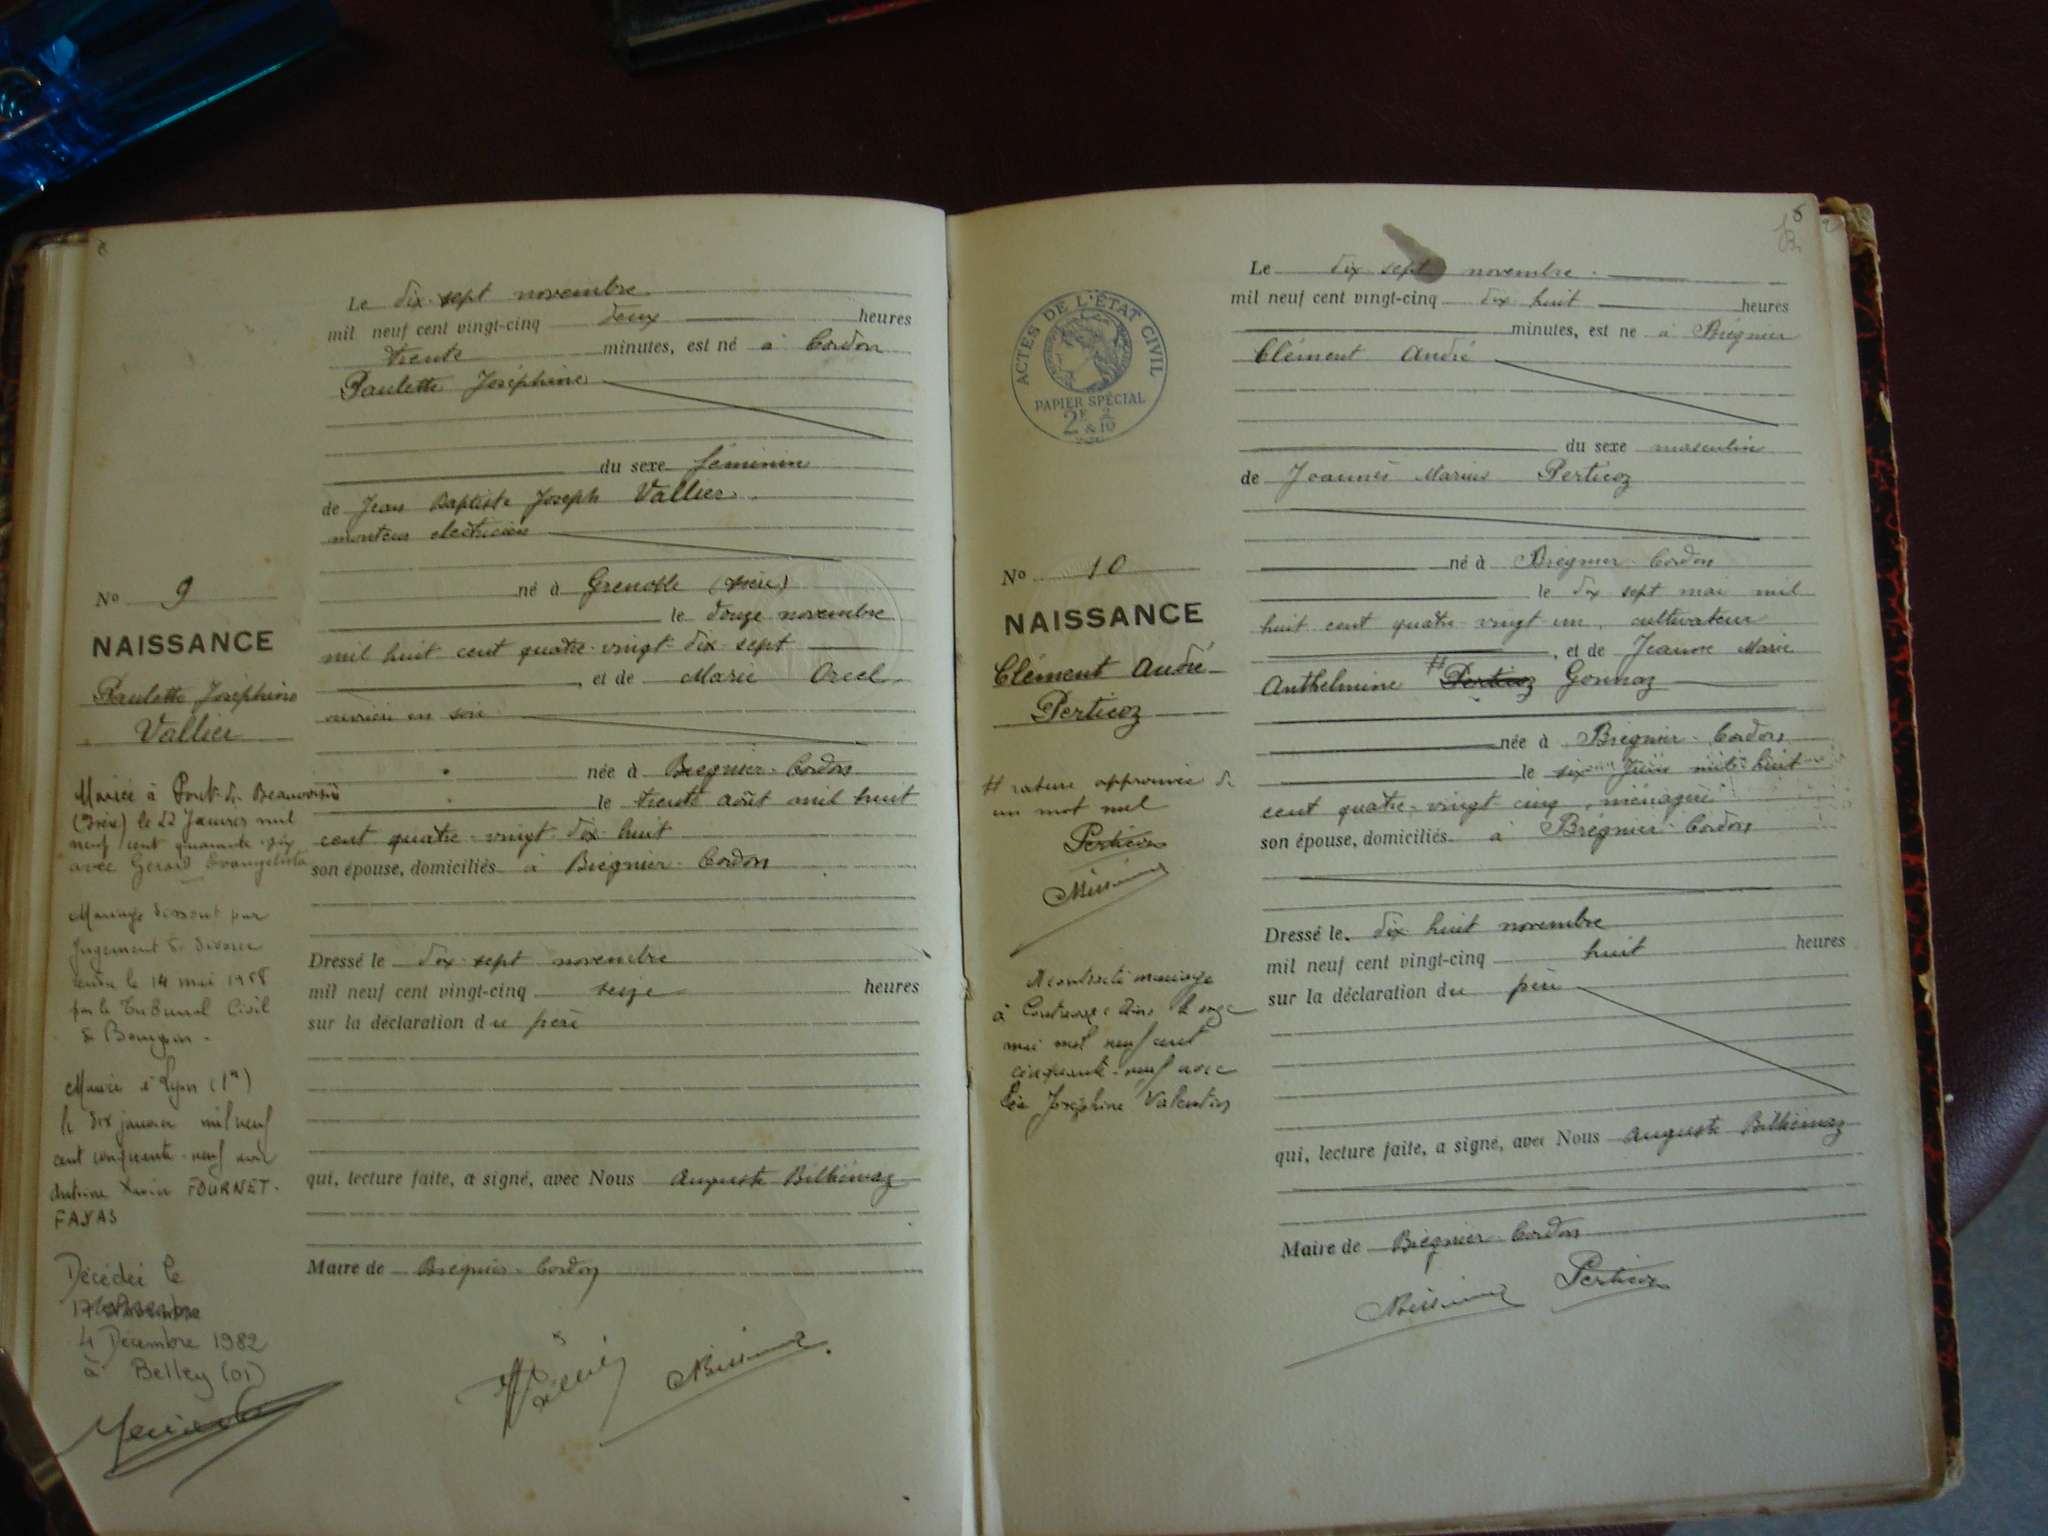 Le dix-sept novembre
mil neuf cent vingt-cinq deux heures
trente minutes, est né à Cordon
Paulette Joséphine
du sexe féminin
de Jean Baptiste Joseph Vallier
monteur electricien
né à Grenoble (Isère)
le douze novembre
mil huit cent quatre-vingt-dix-sept
, et de Marie Orcel
ouvrière en soie
née à Bregnier-Cordon
le trente août mil huit
cent quatre-vingt-dix-huit
son épouse, domiciliés à Bregnier-Cordon
Dressé le dix-sept novembre
mil neuf cent vingt-cinq seize heures
sur la déclaration du père
qui, lecture faite, a signé, avec Nous Auguste Billiémaz
Maire de Bregnier-Cordon
No 9
NAISSANCE
Paulette Joséphine
Vallier
Mariée à Pont-de-Beauvoisin
(Isère) le 22 Janvier mil
neuf cent quarante-six
avec Gérard Evangelista
Mariage dissout par
Jugement de divorce
rendu le 14 mai 1958
par le Tribunal Civil
de Bourgoin-
Mariée à Lyon (1er)
le dix janvier mil neuf
cent cinquante-neuf avec
FOURNET-
FAYAS
Décédée le
4 Decembre 1982
à Belley (01)
6
Le dix sept novembre
mil neuf cent vingt-cinq dix huit heures
minutes, est né à Brégnier
Clément André
du sexe masculin
de Joannès Marius Perticoz
né à Brégnier-Cordon
le dix sept mai mil
huit cent quatre-vingt-un, cultivateur
, et de Jeanne Marie
Anthelmine # Perticoz Gonnaz
née à Brégnier-Cordon
le six Juin mil huit
cent quatre-vingt cinq, ménagère
son épouse, domiciliés à Brégnier-Cordon
Dressé le dix huit novembre
mil neuf cent vingt-cinq huit heures
sur la déclaration du père
qui, lecture faite, a signé, avec Nous Auguste Billiémaz
Maire de Bregnier-Cordon
Perticoz
ACTES DE L'ÉTAT CIVIL
PAPIER SPÉCIAL
2F & 2/10
No 10
NAISSANCE
Clément André
Perticoz
# rature approuvée de
un mot nul
Perticoz
A contracté mariage
à Contrevoz (Ain) le onze
mai mil neuf cent
cinquante-neuf avec
Joséphine Valentin